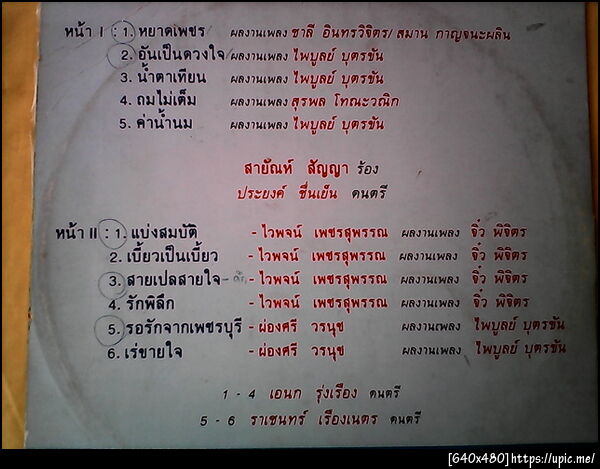 หน้า I : 1. หยาดเพชร ผลงานเพลง ชาลี อินทรวิจิตร/ สมาน กาญจนะผลิน
2. อันเป็นดวงใจ ผลงานเพลง ไพบูลย์ บุตรขัน
3. น้ำตาเทียน ผลงานเพลง ไพบูลย์ บุตรขัน
4. ถมไม่เต็ม ผลงานเพลง สุรพล โทณะวณิก
5. ค่าน้ำนม ผลงานเพลง ไพบูลย์ บุตรขัน
สายัณห์ สัญญา ร้อง
ประยงค์ ชื่นเย็น ดนตรี
หน้า II : 1. แบ่งสมบัติ - ไวพจน์ เพชรสุพรรณ ผลงานเพลง จิ๋ว พิจิตร
2. เบี้ยวเป็นเบี้ยว - ไวพจน์ เพชรสุพรรณ ผลงานเพลง จิ๋ว พิจิตร
3. สายเปลสายใจ - ไวพจน์ เพชรสุพรรณ ผลงานเพลง จิ๋ว พิจิตร
4. รักพิลึก - ไวพจน์ เพชรสุพรรณ ผลงานเพลง จิ๋ว พิจิตร
5. รอรักจากเพชรบุรี - ผ่องศรี วรนุช ผลงานเพลง ไพบูลย์ บุตรขัน
6. เร่ขายใจ - ผ่องศรี วรนุช ผลงานเพลง ไพบูลย์ บุตรขัน
1 - 4 เอนก รุ่งเรือง ดนตรี
5 - 6 ราเชนทร์ เรืองเนตร ดนตรี
[640x480]https://upic.me/